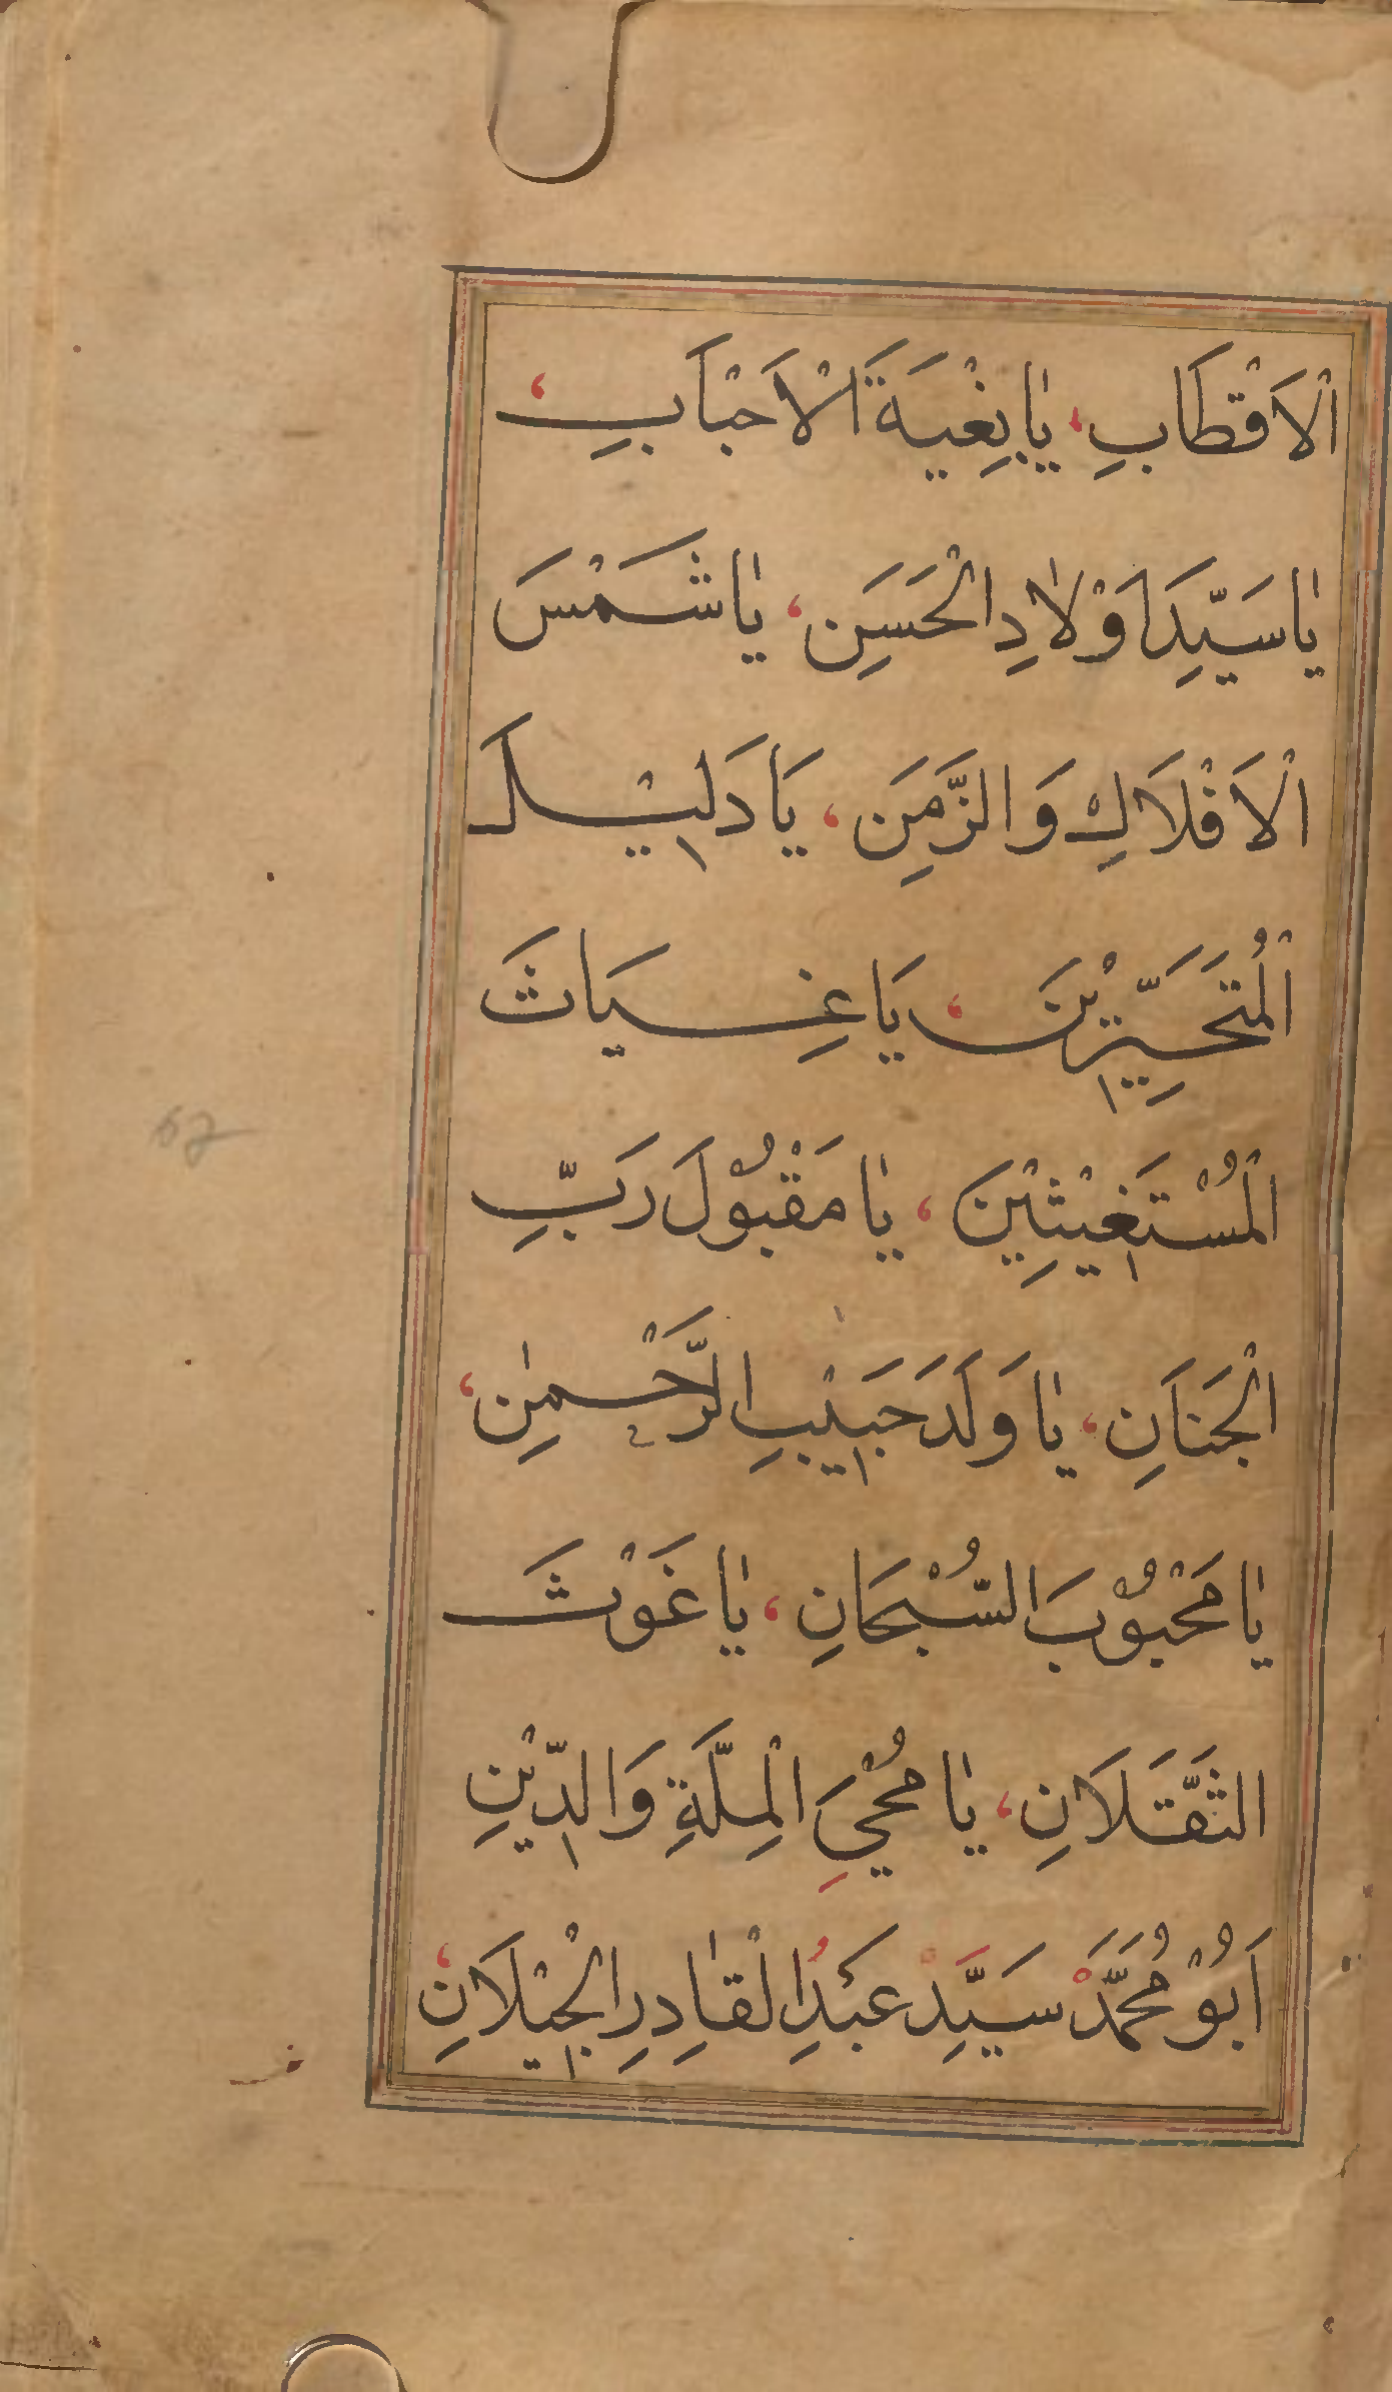 اْلاَقْطَابِ، يٰا بِغْيَةَ اْلاَحْبَابِ،
يٰا سَيِّدَ اَوْلٰادِ الْحَسَنِ، يٰا شَمْسَ
اْلاَفْلَاكِ وَالزَّمَنِ، يَا دَلِيْلَ
الْمُتَحَيِّرِيْنَ، يَا غِيَاثَ
الْمُسْتَغِيْثِيْنَ، يٰا مَقْبُوْلَ رَبِّ
الْجَنَانِ، يٰا وَلَدَ حَبِيْبِ الرَّحْمٰنِ،
يٰا مَحْبُوْبَ السُّبْحَانِ، يٰا غَوْثَ
الثَّقَلَانِ، يٰا مُحْيِيَ الْمِلَّةِ وَالدِّيْنِ
اَبُوْ مُحَمَّدْ سَيِّدْ عَبْدُ الْقٰادِرِ الْجِيْلَانِ،